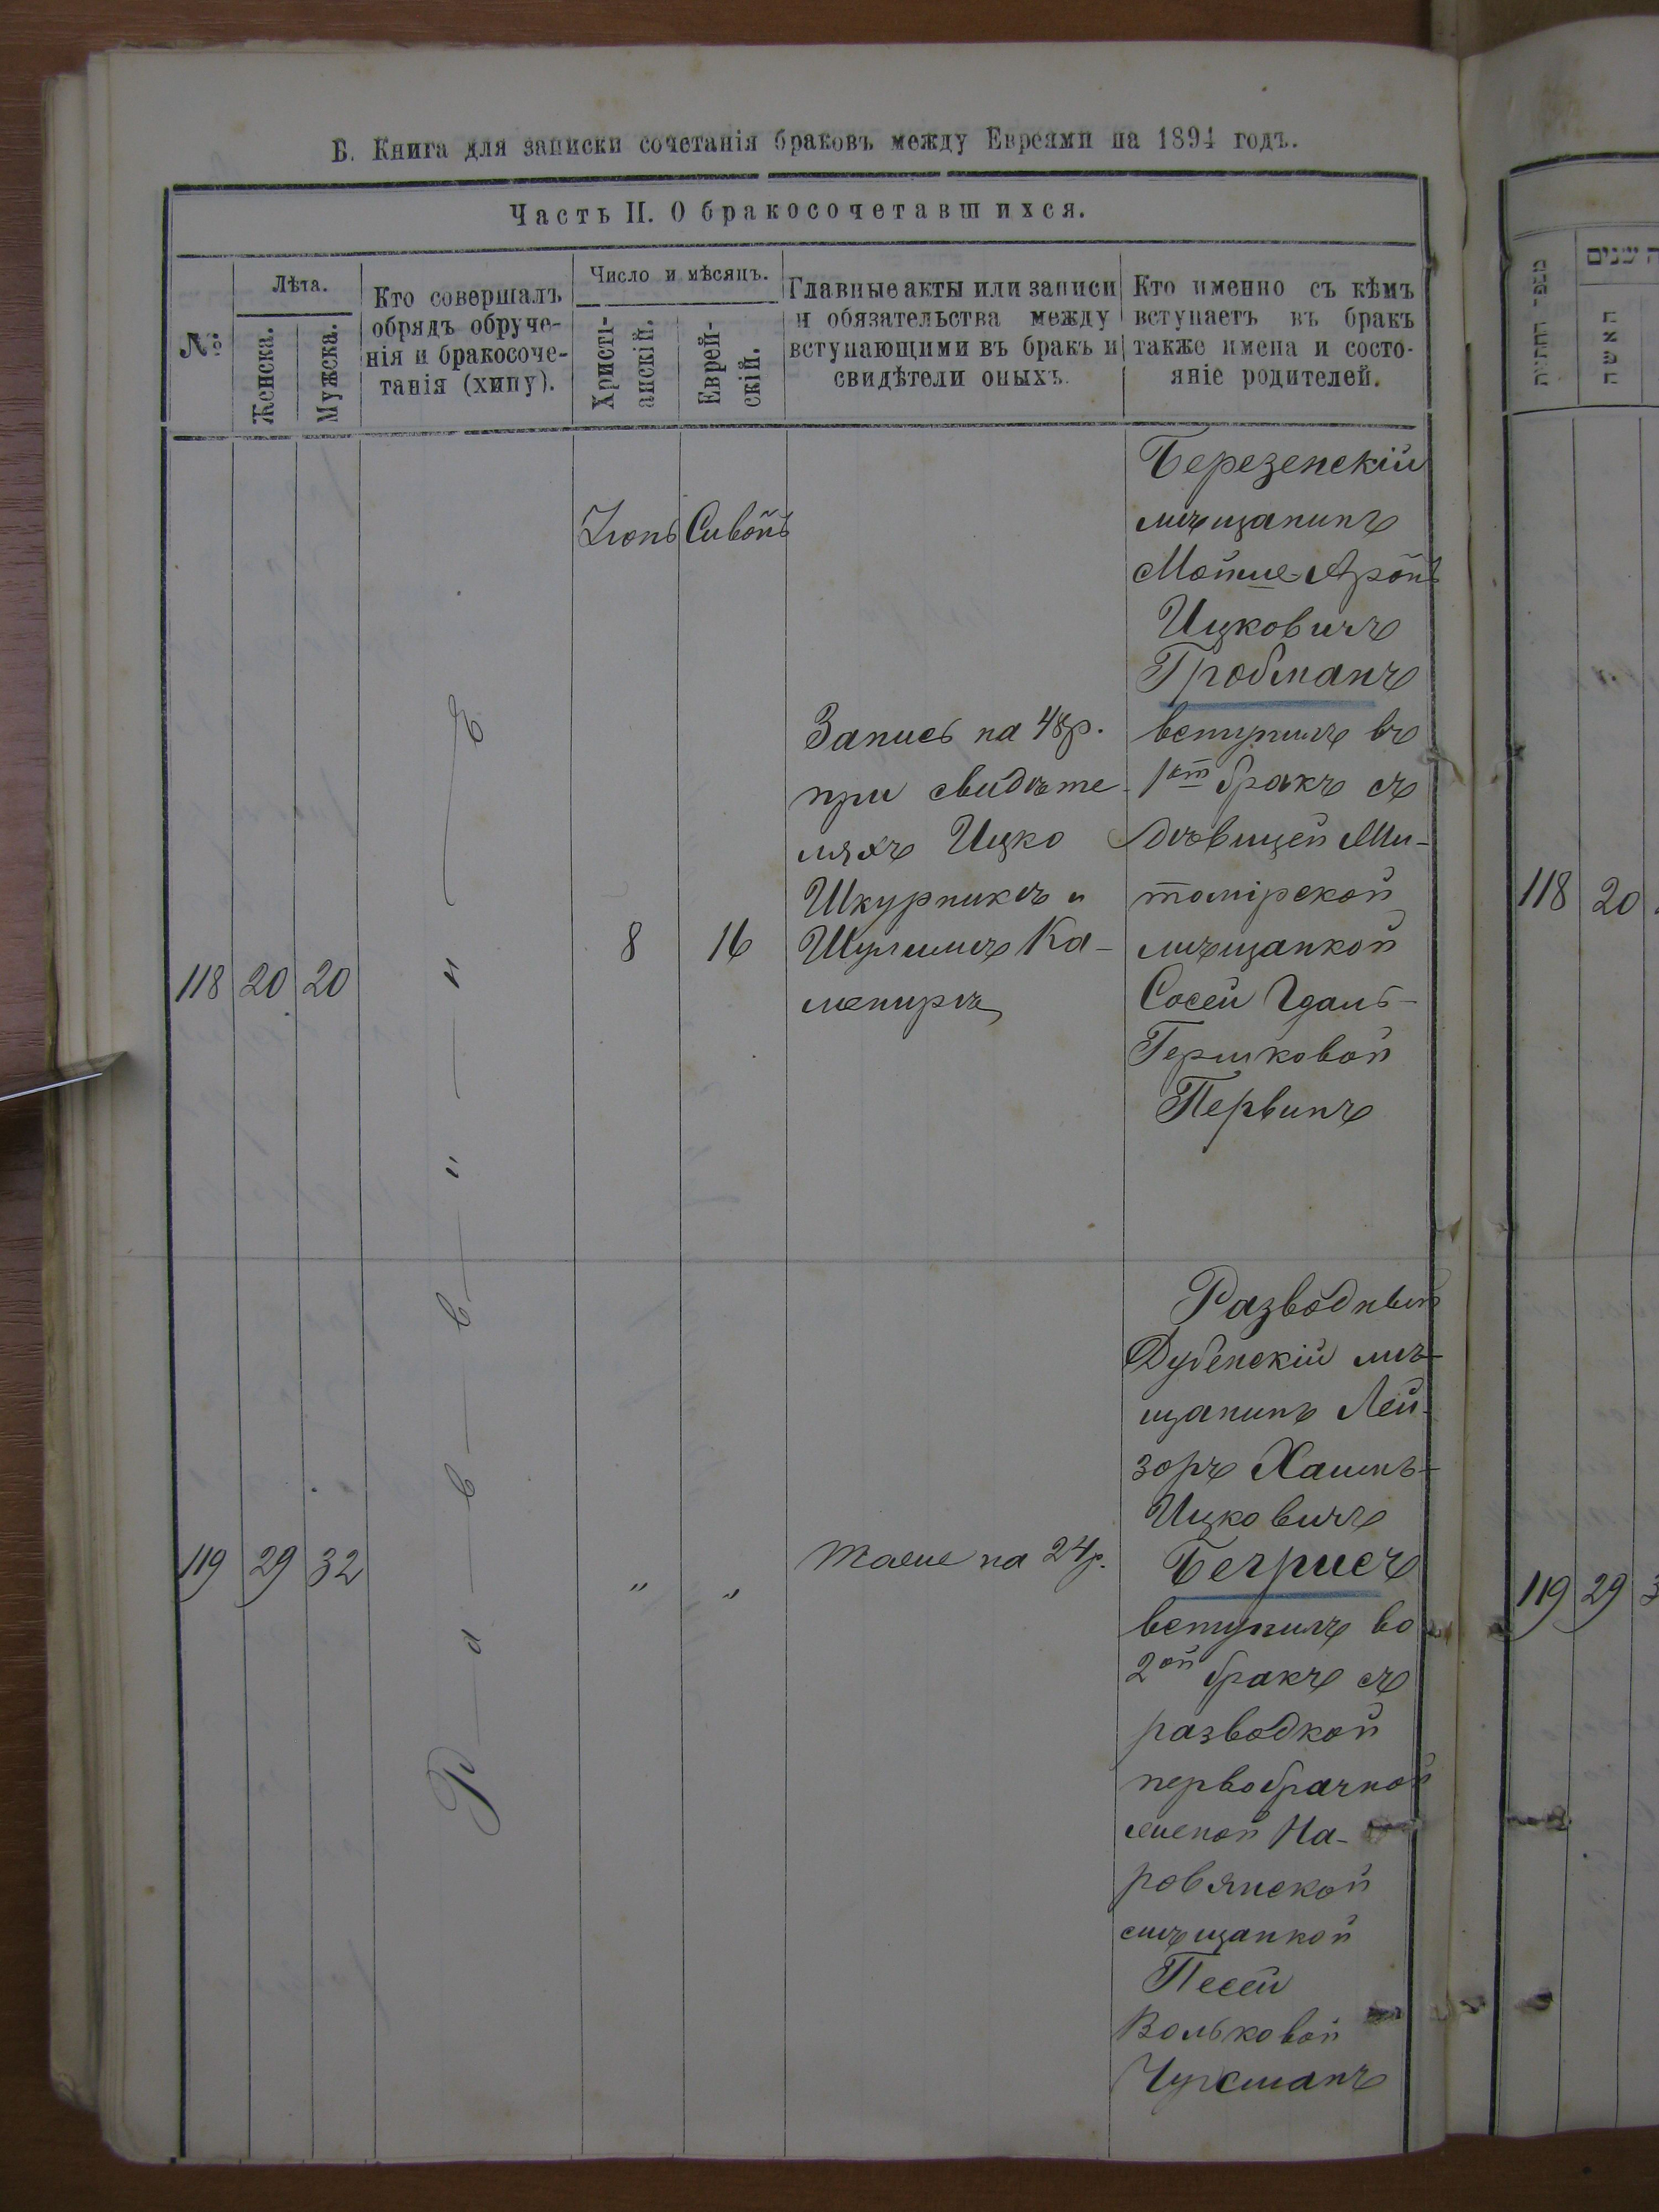 Б. Книга для записки сочетанія браковъ между Евреями на 1894 годъ.
Часть II. О бракосочетавшихся.
№
Лѣта.
Женска.
Мужска.
Кто совершалъ
обрядъ обруче-
нія и бракосоче-
танія (хипу).
Число и мѣсяцъ.
Христі-
анскій.
Еврей-
скій.
Главные акты или записи
и обязательства между
вступающими въ бракъ и
свидѣтели оныхъ.
Кто именно съ кѣмъ
вступаетъ въ бракъ
также имена и состо-
яніе родителей.
Р а в в и н ъ
Іюнь
Сивонъ
118
20
20
8
16
Запись на 48 р.
при свидѣте-
ляхъ Ицко
Шкурникъ и
Шулимъ Ка-
мениръ
Березенскій
мѣщанинъ
Мотше-Аронъ
Ицковичъ
Гробманъ
вступилъ въ
1ый бракъ съ
дѣвицей Жи-
томірской
мѣщанкой
Сосей Гдаль-
Гершковой
Первинъ
119
29
32
"
"
тоже на 24 р.
Разводный
Дубенскій мѣ-
щанинъ Лей-
зоръ Хаимъ-
Ицковичъ
Бегрисъ
вступилъ во
2ой бракъ съ
разводкой
первобрачной
женой На-
ровлянской
мѣщанкой
Песей
Вольковой
מספר החתונה
האשה
118
20
119
29